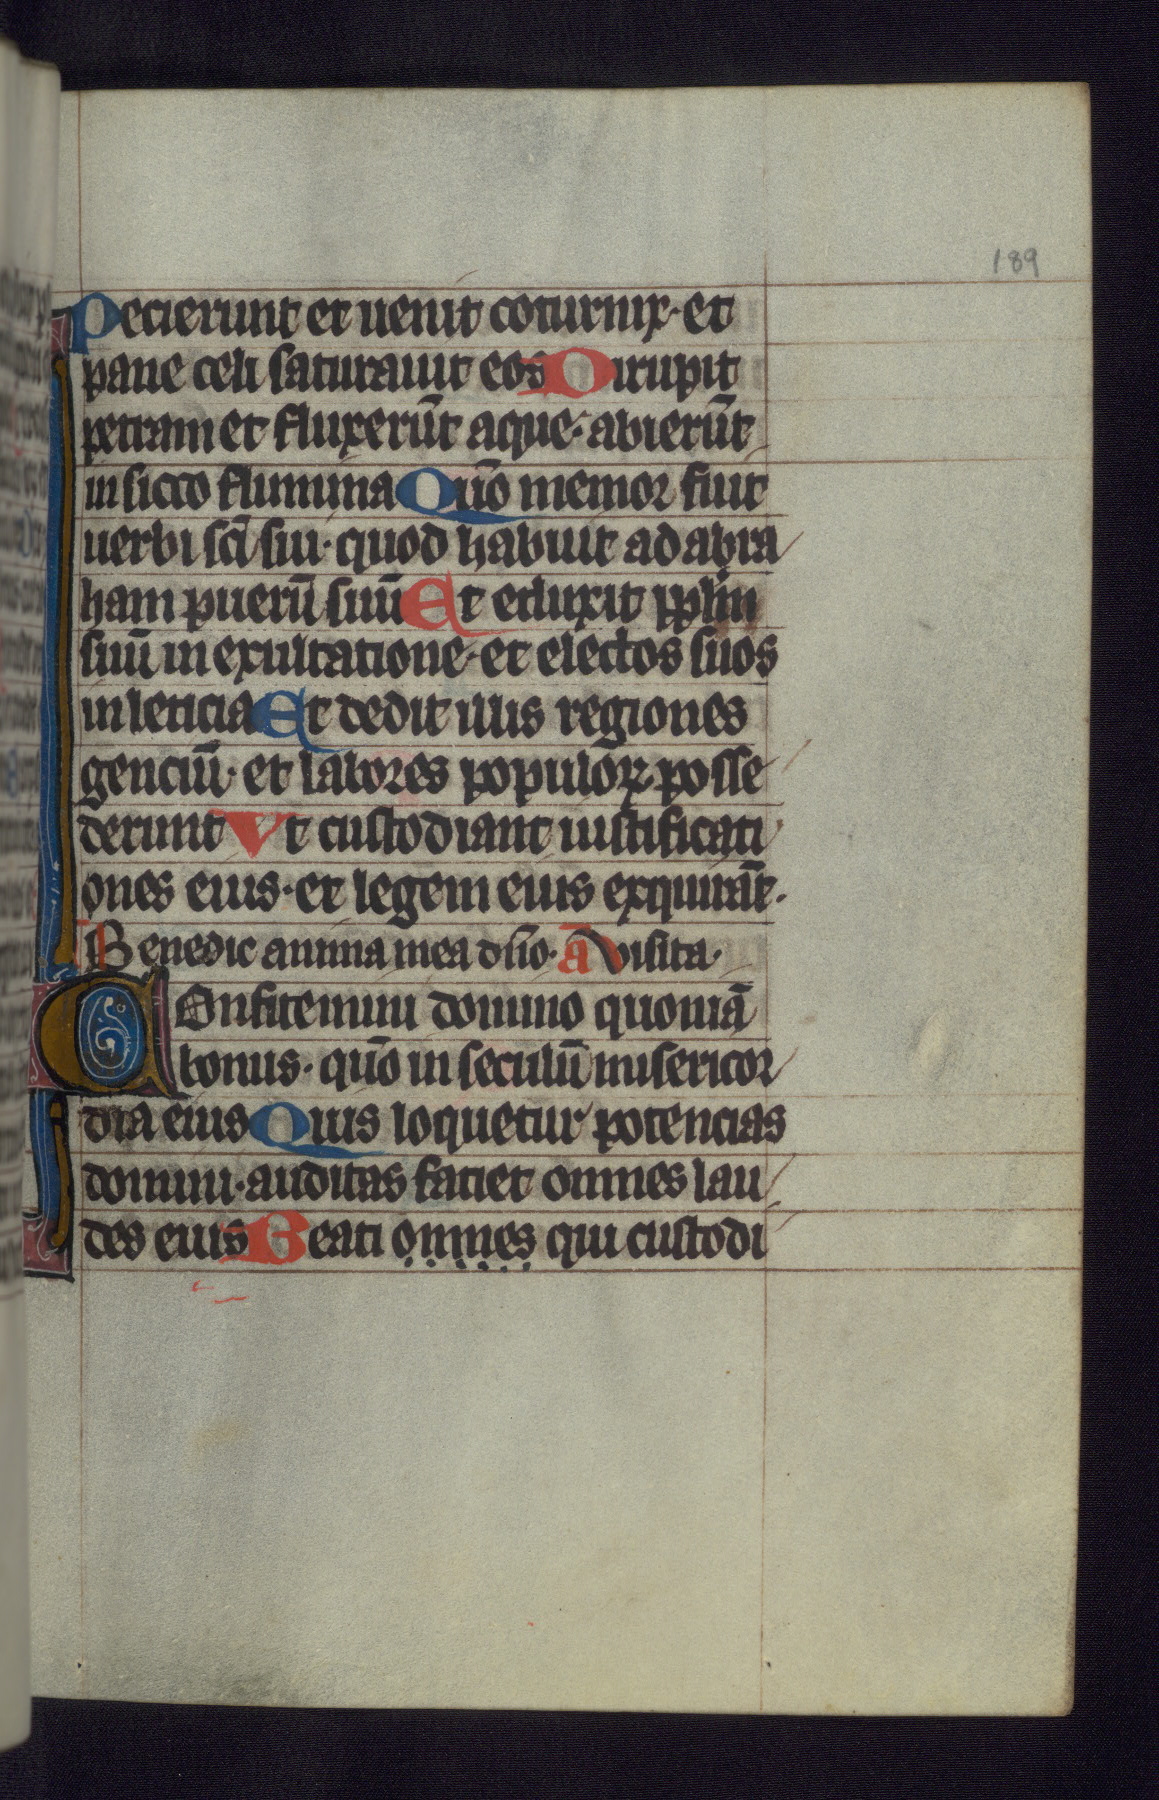 189
Pecierunt et uenit coturnix· et
pane celi saturauit eos Dirupit
petram et fluxerūt aque· abierūt
in sicco flumina Qūo memor fuit
uerbi scī sui· quod habuit ad abra
ham puerū suū Et eduxit pplm̄
suū in exultatione· et electos suos
in leticia Et dedit illis regiones
genciū· et labores populoꝝ posse
derunt Vt custodiant iustificati
ones eius· et legem eius exquirāt·
Benedic anima mea dn̄o· ā Visita·
Confitemini domino quoniā
bonus· qūo in seculū misericor
dia eius Quis loquetur potencias
domini· auditas faciet omnes lau
des eius Beati omnes qui custodi